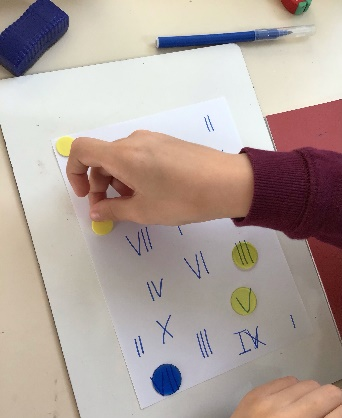 II
VII
VI
III
IV
V
X
II
III
IX
I